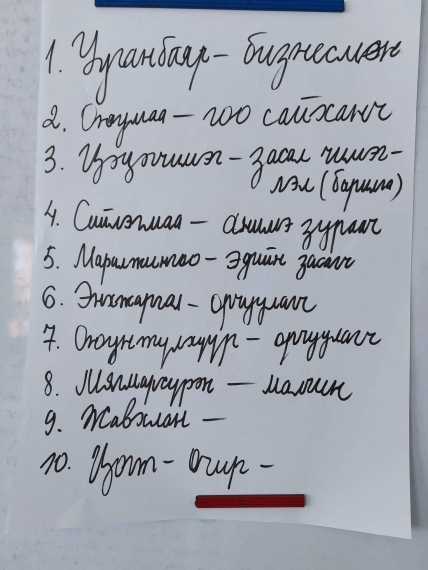 1. Ууганбаяр – бизнесмэн
2. Оюумаа – гоо сайханч
3. Цэцэгчимэг – засал чимэг-
лэл (барилга)
4. Сийлэгмаа – анимэ зураач
5. Маралжингоо – эдийн засагч
6. Энхжаргал – орчуулагч
7. Оюунтүлхүүр – орчуулагч
8. Мягмарсүрэн – малчин
9. Жавхлан –
10. Цогт – Очир –